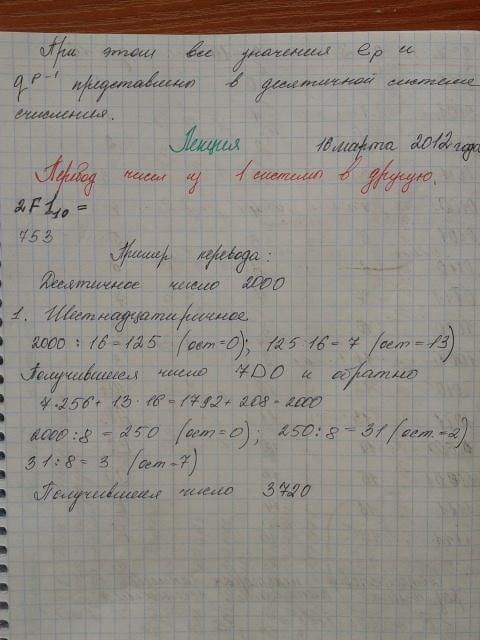 При этом все значения ep и
q^p-1 представлены в десятичной системе
счисления.
Лекция 10 марта 2012 года
Перевод чисел из 1 системы в другую.
2F1₁₀ =
753
Пример перевода:
Десятичное число 2000
1. Шестнадцатиричное
2000 : 16 = 125 (ост=0); 125·16 = 7 (ост=13)
Получившееся число 7D0 и обратно
7·256 + 13·16 = 1792 + 208 = 2000
2000 : 8 = 250 (ост=0); 250 : 8 = 31 (ост.=2)
31 : 8 = 3 (ост=7)
Получившееся число 3720